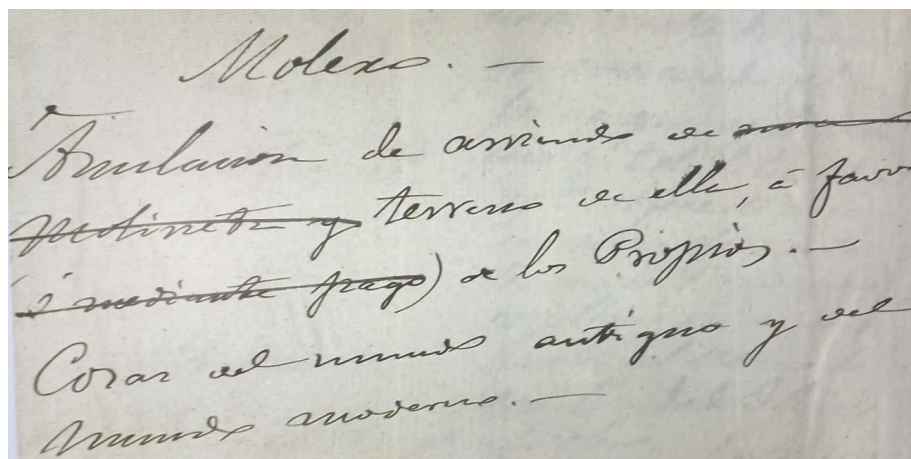 Molexo. —
Anulacion de arriendo de
Molineta y terreno de ella, á favor
(ó mediante pago) de los Propios. —
Cosas del mundo antiguo y del
mundo moderno. —